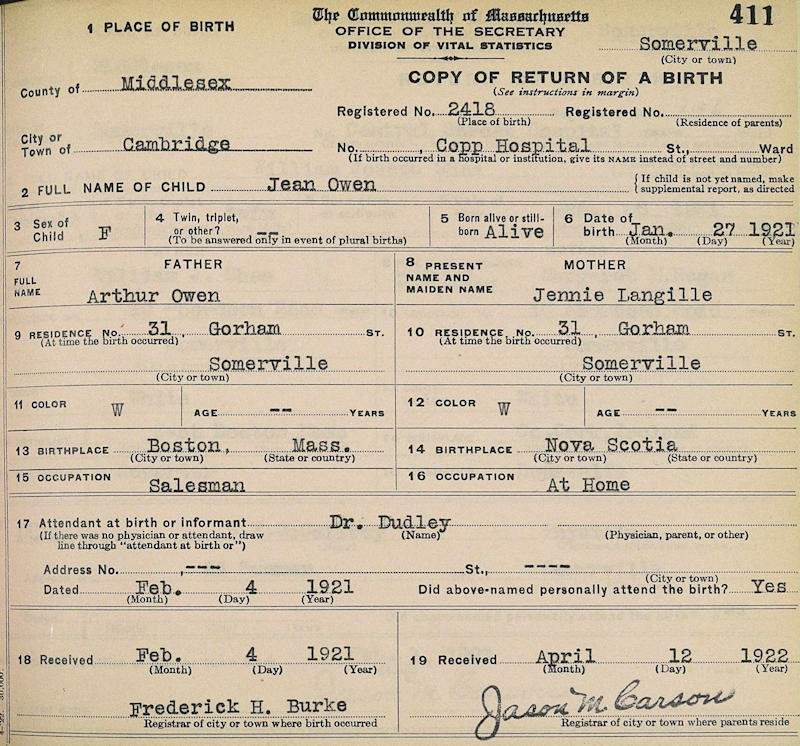 The Commonwealth of Massachusetts 411
1 PLACE OF BIRTH OFFICE OF THE SECRETARY
DIVISION OF VITAL STATISTICS Somerville
(City or town)
County of Middlesex COPY OF RETURN OF A BIRTH
(See instructions in margin)
Registered No. 2418 Registered No.
(Place of birth) (Residence of parents)
City or
Town of Cambridge No. , Copp Hospital St., Ward
(If birth occurred in a hospital or institution, give its NAME instead of street and number)
2 FULL NAME OF CHILD Jean Owen { If child is not yet named, make
supplemental report, as directed
3 Sex of Child F 4 Twin, triplet, or other? -- 5 Born alive or still-born Alive 6 Date of birth Jan. 27 1921
(To be answered only in event of plural births) (Month) (Day) (Year)
7 FATHER 8 PRESENT NAME AND MAIDEN NAME MOTHER
FULL NAME Arthur Owen Jennie Langille
9 RESIDENCE No. 31 , Gorham ST. 10 RESIDENCE No. 31 , Gorham ST.
(At time the birth occurred) (At time the birth occurred)
Somerville Somerville
(City or town) (City or town)
11 COLOR W AGE -- YEARS 12 COLOR W AGE -- YEARS
13 BIRTHPLACE Boston, Mass. 14 BIRTHPLACE Nova Scotia
(City or town) (State or country) (City or town) (State or country)
15 OCCUPATION Salesman 16 OCCUPATION At Home
17 Attendant at birth or informant Dr. Dudley
(If there was no physician or attendant, draw (Name) (Physician, parent, or other)
line through "attendant at birth or")
Address No. , --- St., ----
(City or town)
Dated Feb. 4 1921 Did above-named personally attend the birth? Yes
(Month) (Day) (Year)
18 Received Feb. 4 1921 19 Received April 12 1922
(Month) (Day) (Year) (Month) (Day) (Year)
Frederick H. Burke Jason M. Carson
Registrar of city or town where birth occurred Registrar of city or town where parents reside
4-'22. 50,000.